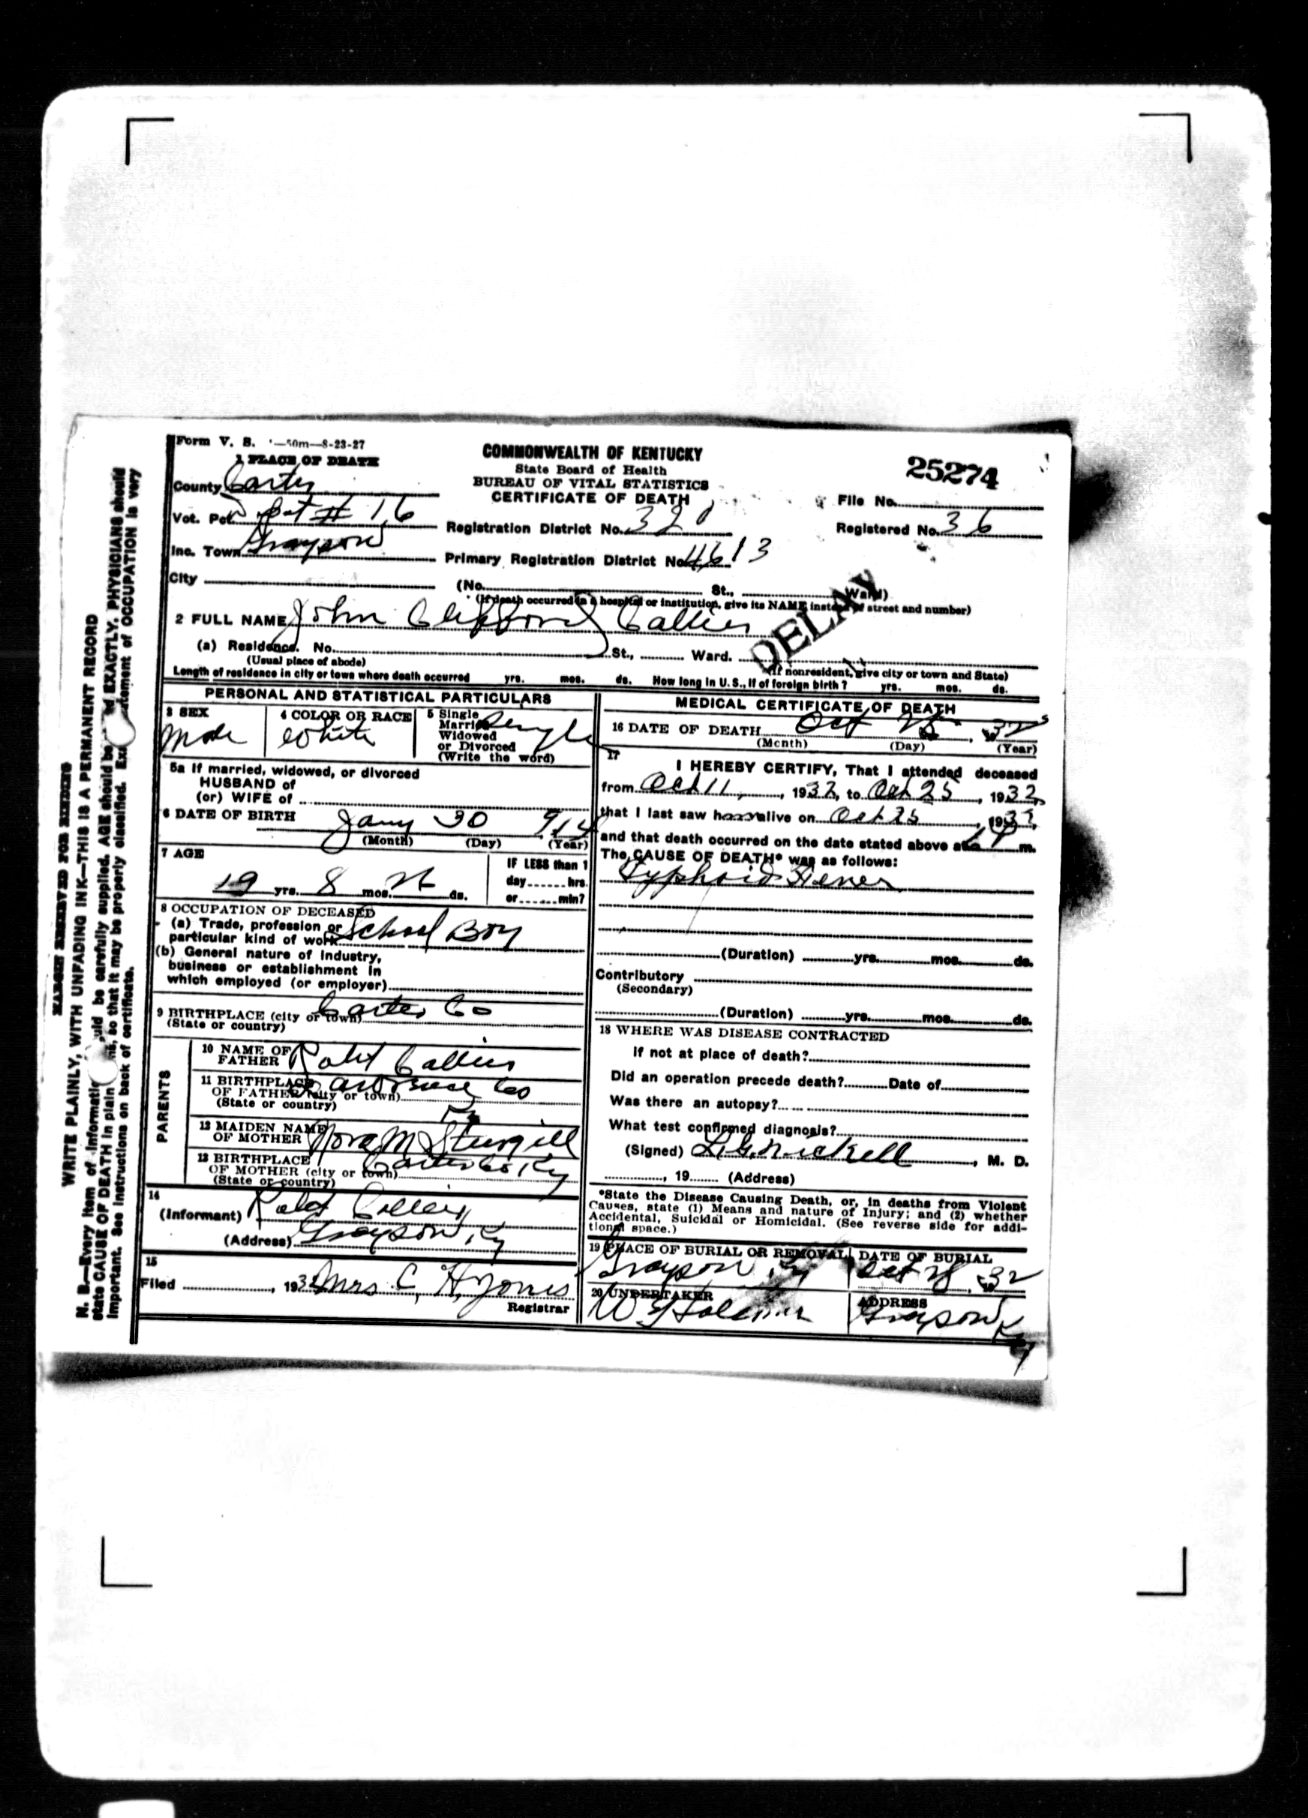 Form V. S. —50m—8-23-27
1 PLACE OF DEATH
COMMONWEALTH OF KENTUCKY
State Board of Health
BUREAU OF VITAL STATISTICS
CERTIFICATE OF DEATH
25274
County Carter
File No.
Vot. Pct. # 16
Registration District No.
Registered No. 36
Inc. Town Grayson
Primary Registration District No. 4613
City
(No. St., Ward)
(If death occurred in a hospital or institution, give its NAME instead of street and number)
DELAY
2 FULL NAME John Clifford Collier
(a) Residence. No. St., Ward.
(Usual place of abode) (If nonresident, give city or town and State)
Length of residence in city or town where death occurred yrs. mos. ds. How long in U. S., if of foreign birth? yrs. mos. ds.
PERSONAL AND STATISTICAL PARTICULARS
3 SEX 4 COLOR OR RACE 5 Single
Married
Widowed
or Divorced
(Write the word)
Male White Single
5a If married, widowed, or divorced
HUSBAND of
(or) WIFE of
6 DATE OF BIRTH Jany 30 914
(Month) (Day) (Year)
7 AGE
IF LESS than 1
day hrs.
or min?
19 yrs. 8 mos. ds.
8 OCCUPATION OF DECEASED
(a) Trade, profession or
particular kind of work School Boy
(b) General nature of Industry,
business or establishment in
which employed (or employer)
9 BIRTHPLACE (city or town) Carter Co
(State or country)
PARENTS
10 NAME OF
FATHER Robt Collier
11 BIRTHPLACE
OF FATHER (city or town) Co
(State or country) Ky
12 MAIDEN NAME
OF MOTHER Nora M Sturgill
13 BIRTHPLACE
OF MOTHER (city or town) Carter Co Ky
(State or country)
14
(Informant) Robt Collier
(Address) Grayson, Ky
15
Filed , 1932 Mrs C. H. Jones
Registrar
MEDICAL CERTIFICATE OF DEATH
16 DATE OF DEATH Oct 25, 32
(Month) (Day) (Year)
17
I HEREBY CERTIFY, That I attended deceased
from Oct 11, 1932, to Oct 25, 1932,
that I last saw h alive on Oct 25, 1932,
and that death occurred on the date stated above at m.
The CAUSE OF DEATH* was as follows:
Typhoid Fever
(Duration) yrs. mos. ds.
Contributory
(Secondary)
(Duration) yrs. mos. ds.
18 WHERE WAS DISEASE CONTRACTED
If not at place of death?
Did an operation precede death? Date of
Was there an autopsy?
What test confirmed diagnosis?
(Signed) L. G. Nickell, M. D.
, 19 (Address)
*State the Disease Causing Death, or, in deaths from Violent
Causes, state (1) Means and nature of Injury; and (2) whether
Accidental, Suicidal or Homicidal. (See reverse side for addi-
tional space.)
19 PLACE OF BURIAL OR REMOVAL DATE OF BURIAL
Grayson, Ky Oct 28, 32
20 UNDERTAKER ADDRESS
Grayson Ky
MARGIN RESERVED FOR BINDING
WRITE PLAINLY, WITH UNFADING INK—THIS IS A PERMANENT RECORD
N. B.—Every item of information should be carefully supplied. AGE should be stated EXACTLY. PHYSICIANS should
state CAUSE OF DEATH in plain terms, so that it may be properly classified. Exact statement of OCCUPATION is very
important. See instructions on back of certificate.